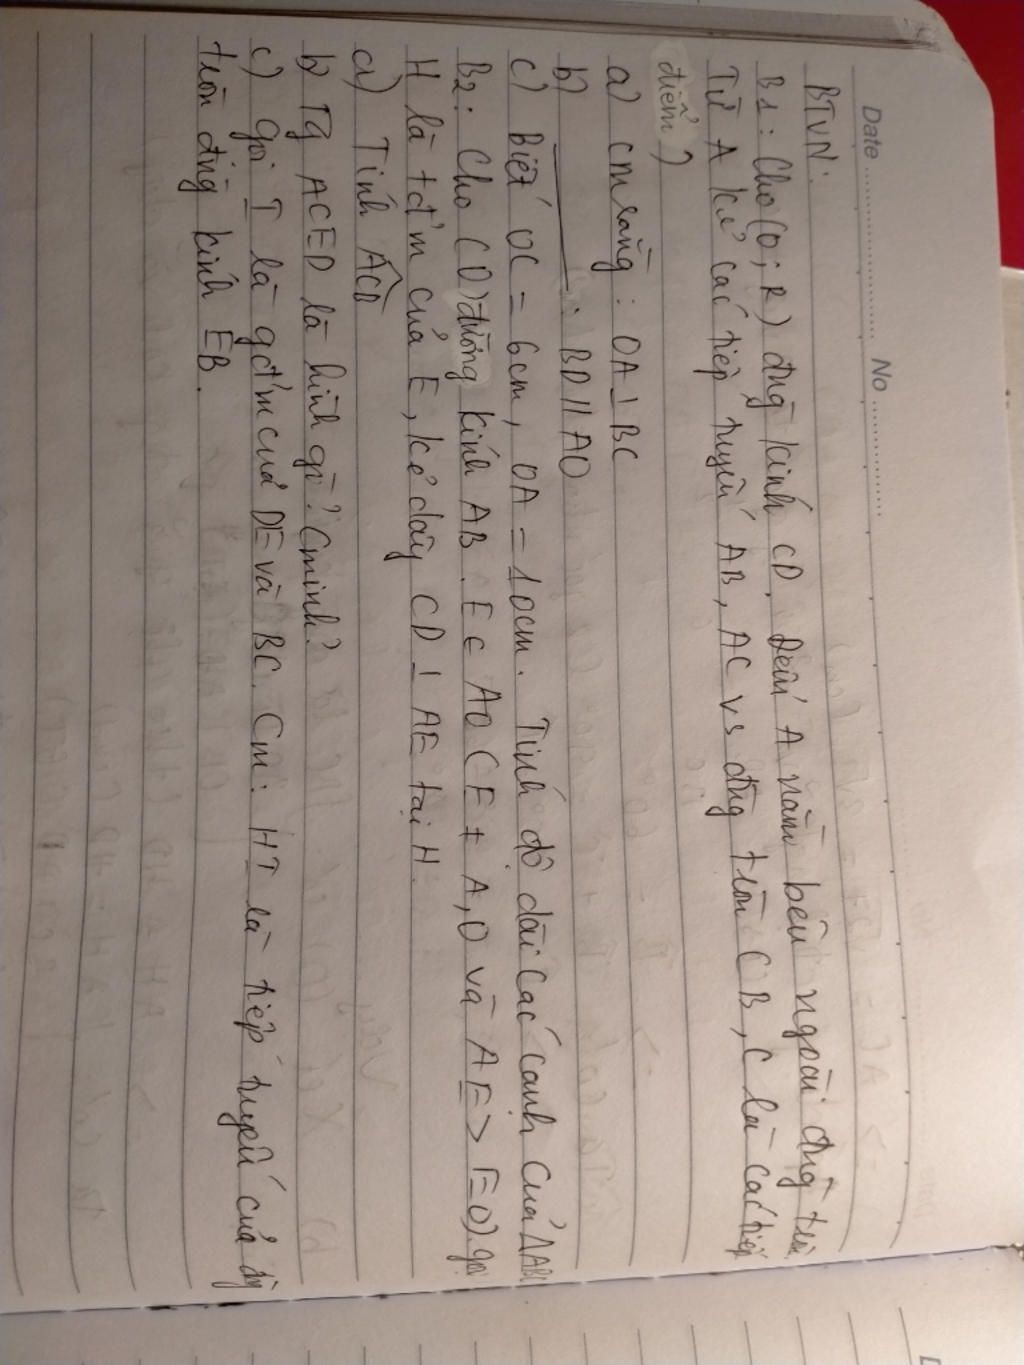 Date ............ No ............
BTVN:
B1: Cho (O; R) đng kính CD. Điểm A nằm bên ngoài đng tròn.
Từ A kẻ các tiếp tuyến AB, AC vs đng tròn (B, C là các tiếp
điểm)
a) cm rằng: OA ⊥ BC
b) ______: BD // AO
c) Biết OC = 6cm, OA = 10cm. Tính độ dài các cạnh của ΔABC
B2: Cho (O) đường kính AB. E ∈ AO (E ≠ A, O và AE > EO). gọi
H là tđ'm của E, kẻ dây CD ⊥ AE tại H.
a) Tính ACB
b) Tg ACED là hình gì? Cminh?
c) gọi I là gđ'm của DE và BC. Cm: HI là tiếp tuyến của đg
tròn đng kính EB.